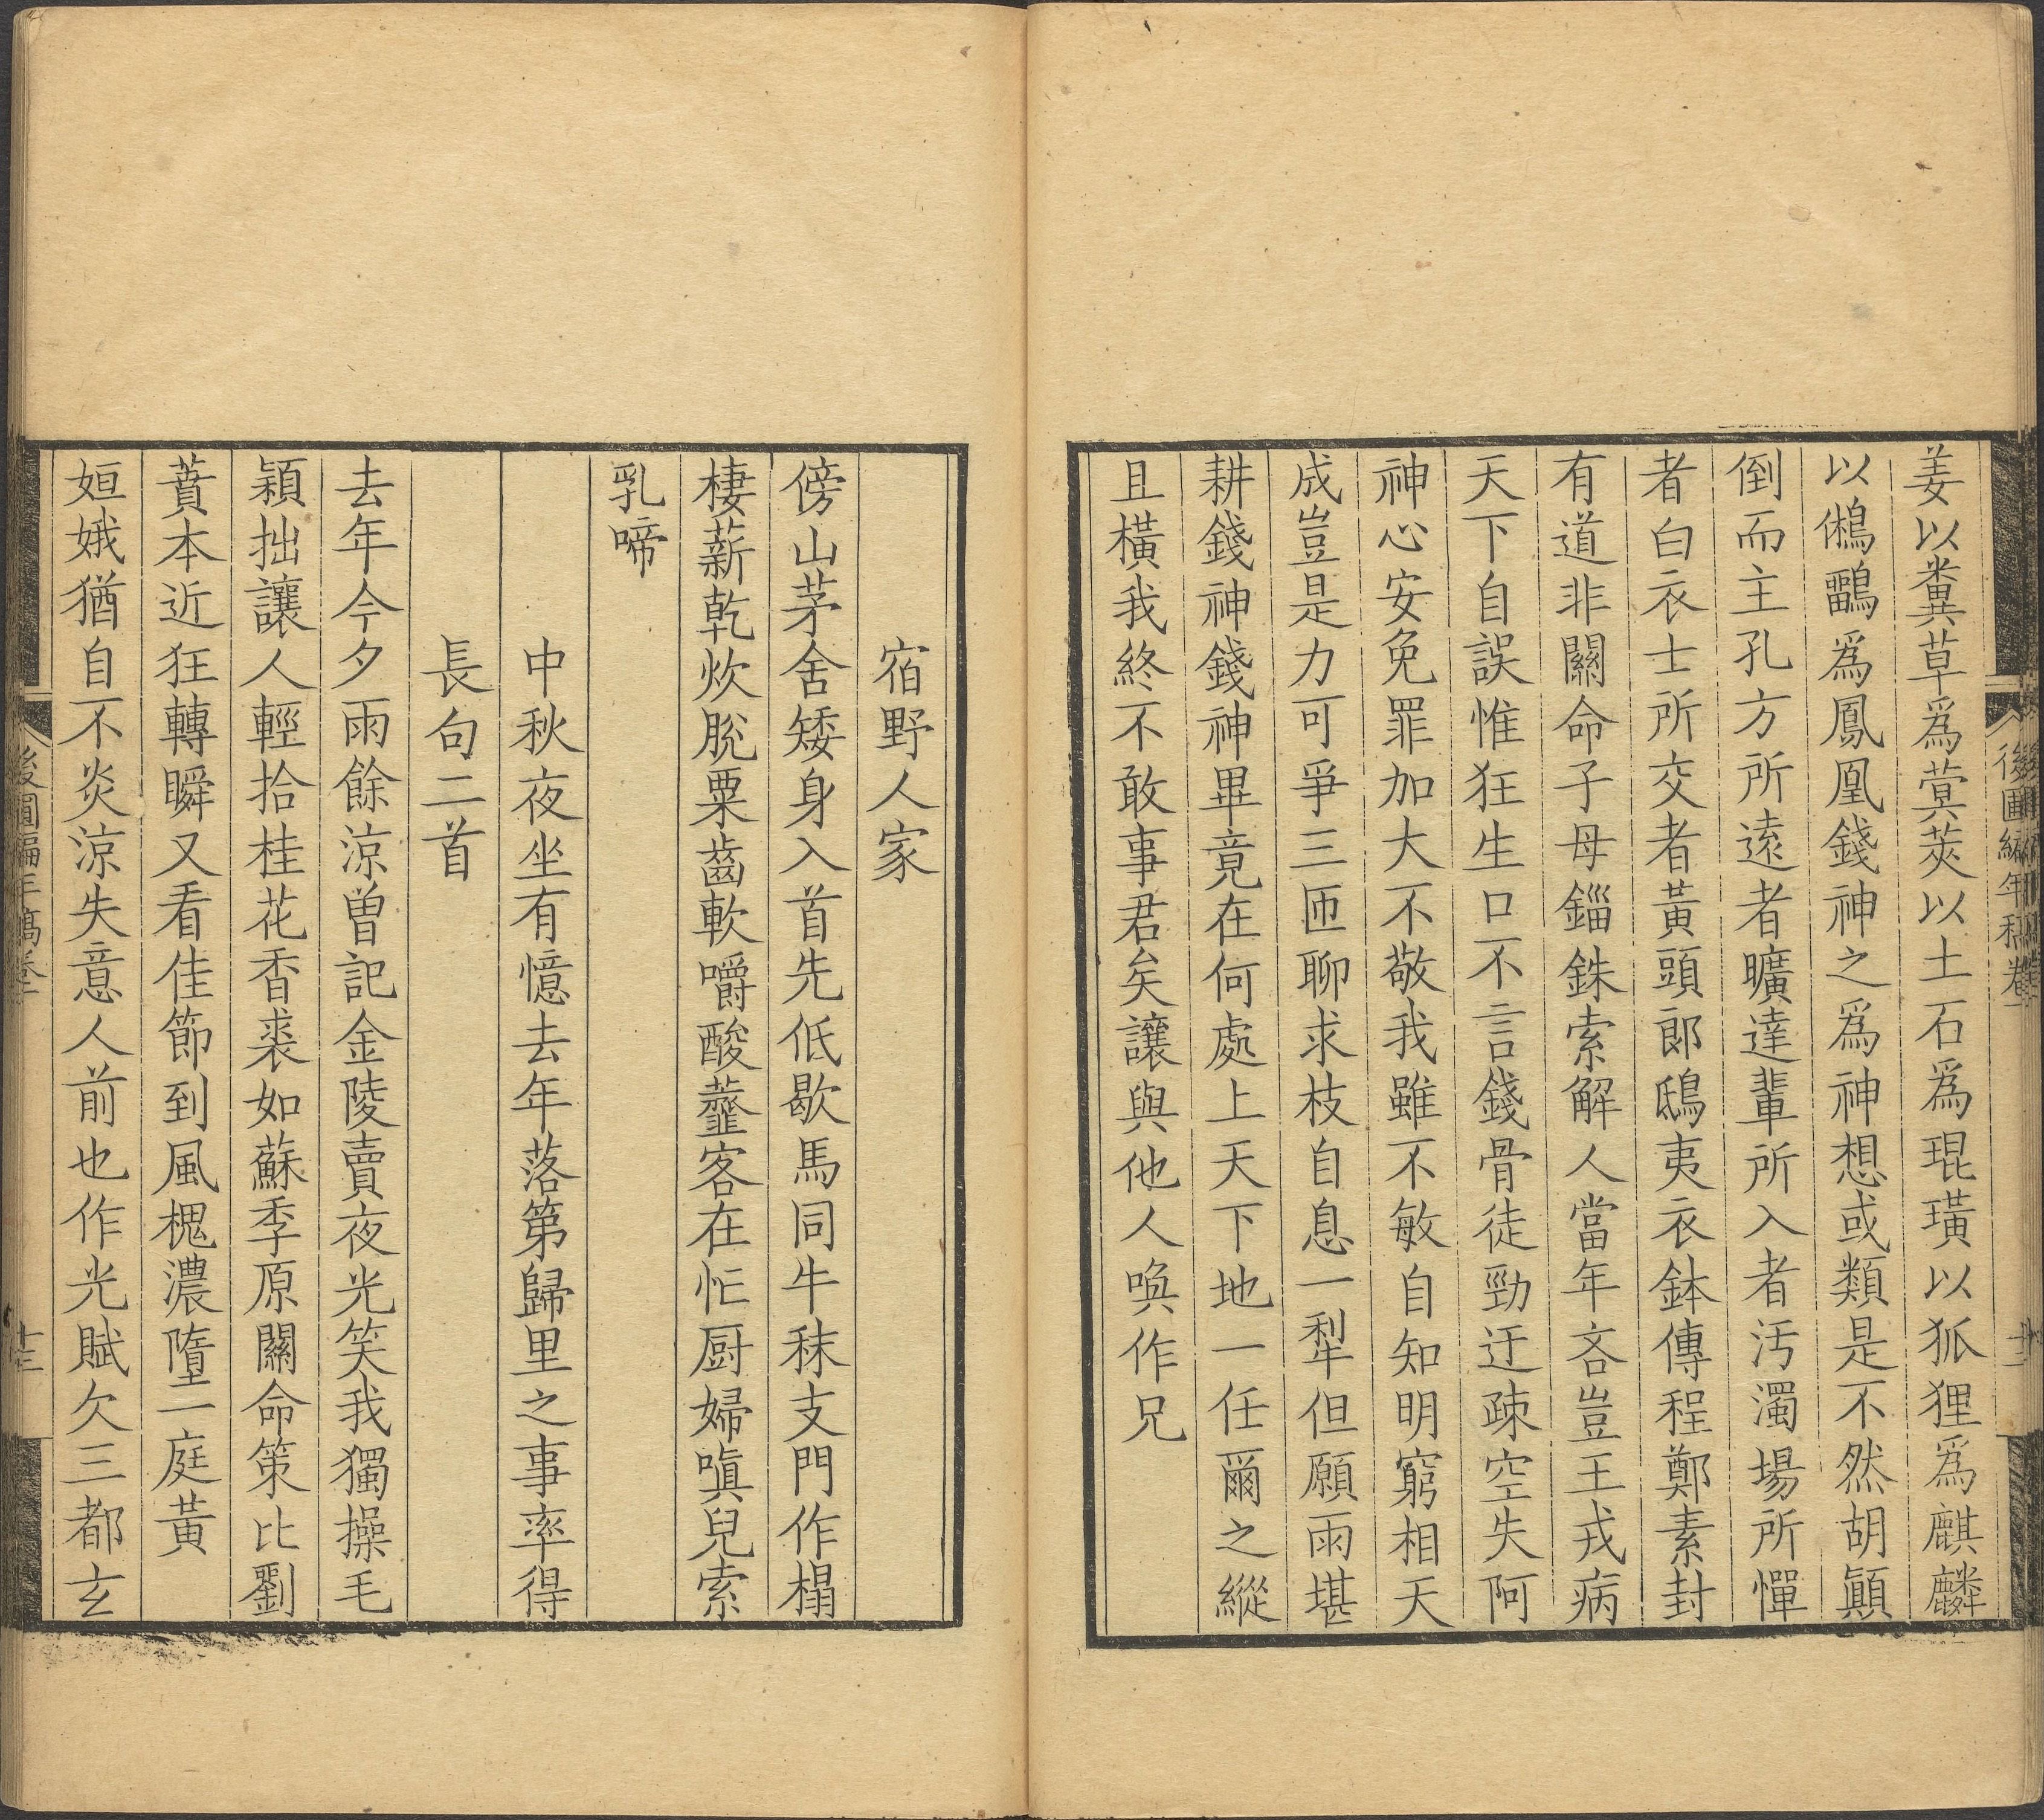 姜以糞草爲蓂莢以土石爲琨璜以狐狸爲麒麟
以鵂鶹爲鳳凰錢神之爲神想或類是不然胡顚
倒而主孔方所遠者曠達輩所入者污濁場所憚
者白衣士所交者黃頭郎鴟夷衣鉢傳程鄭素封
有道非關命子母錙銖索解人當年吝豈王戎病
天下自誤惟狂生口不言錢骨徒勁迂疎空失阿
神心安免罪加大不敬我雖不敏自知明窮相天
成豈是力可爭三匝聊求枝自息一犁但願雨堪
耕錢神錢神畢竟在何處上天下地一任爾之縱
且橫我終不敢事君矣讓與他人喚作兄
後圃編年稿卷
十二
宿野人家
傍山茅舍矮身入首先低歇馬同牛秣支門作榻
棲薪乾炊脫粟齒軟嚼酸虀客在忙厨婦嗔兒索
乳啼
中秋夜坐有憶去年落第歸里之事率得
長句二首
去年今夕雨餘涼曾記金陵賣夜光笑我獨操毛
穎拙讓人輕拾桂花香裘如蘇季原關命策比劉
蕡本近狂轉瞬又看佳節到風槐濃墮一庭黃
姮娥猶自不炎涼失意人前也作光賦欠三都玄
後圃編年稿卷
十三